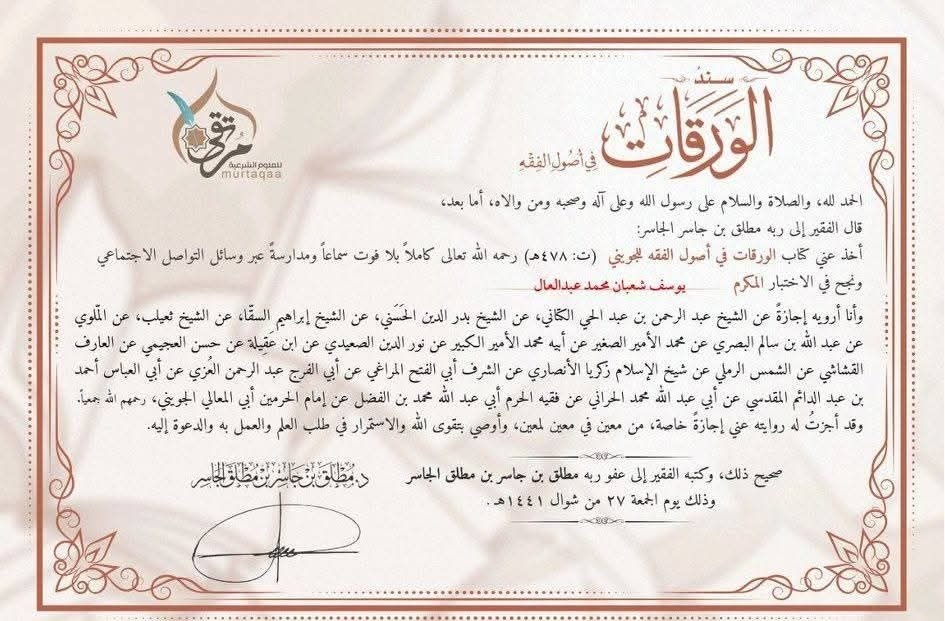 سند
الورقات
في أصول الفقه
مرتقى
للعلوم الشرعية
murtaqaa
الحمد لله، والصلاة والسلام على رسول الله وعلى آله وصحبه ومن والاه، أما بعد،
قال الفقير إلى ربه مطلق بن جاسر الجاسر:
أخذ عني كتاب الورقات في أصول الفقه للجويني (ت: ٤٧٨هـ) رحمه الله تعالى كاملاً بلا فوت سماعاً ومدارسةً عبر وسائل التواصل الاجتماعي
ونجح في الاختبار المكرم يوسف شعبان محمد عبدالعال
وأنا أرويه إجازةً عن الشيخ عبد الرحمن بن عبد الحي الكتاني، عن الشيخ بدر الدين الحَسَني، عن الشيخ إبراهيم السقّا، عن الشيخ ثعيلب، عن الملّوي
عن عبد الله بن سالم البصري عن محمد الأمير الصغير عن أبيه محمد الأمير الكبير عن نور الدين الصعيدي عن ابن عَقِيلة عن حسن العجيمي عن العارف
القشاشي عن الشمس الرملي عن شيخ الإسلام زكريا الأنصاري عن الشرف أبي الفتح المراغي عن أبي الفرج عبد الرحمن الغُزي عن أبي العباس أحمد
بن عبد الدائم المقدسي عن أبي عبد الله محمد الحراني عن فقيه الحرم أبي عبد الله محمد بن الفضل عن إمام الحرمين أبي المعالي الجويني، رحمهم الله جميعاً.
وقد أجزتُ له روايته عني إجازةً خاصة، من معين في معين لمعين، وأوصي بتقوى الله والاستمرار في طلب العلم والعمل به والدعوة إليه.
صحيح ذلك، وكتبه الفقير إلى عفو ربه مطلق بن جاسر بن مطلق الجاسر
وذلك يوم الجمعة ٢٧ من شوال ١٤٤١هـ.
د. مُطْلَق بْنُ جَاسِرِ بْنِ مُطْلَق الجَاسِر